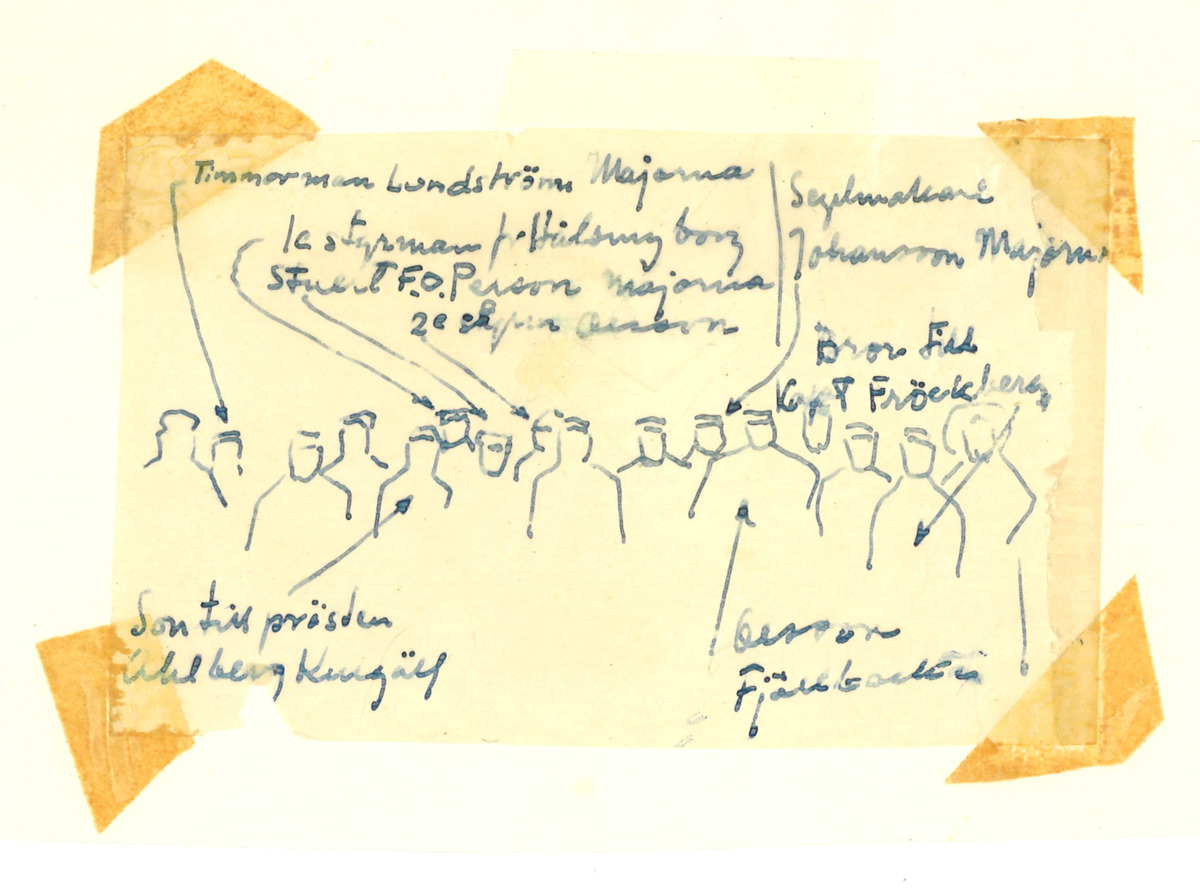 Timmerman Lundström Majorna
1e styrman fr Hälsingborg
Stuert F.O. Person Majorna
2e styrm
Segelmakare
Johansson Majorna
Bror till
Kapt Fröckberg
Son till prösten
Ahlberg Kungälf
Fjällbacka